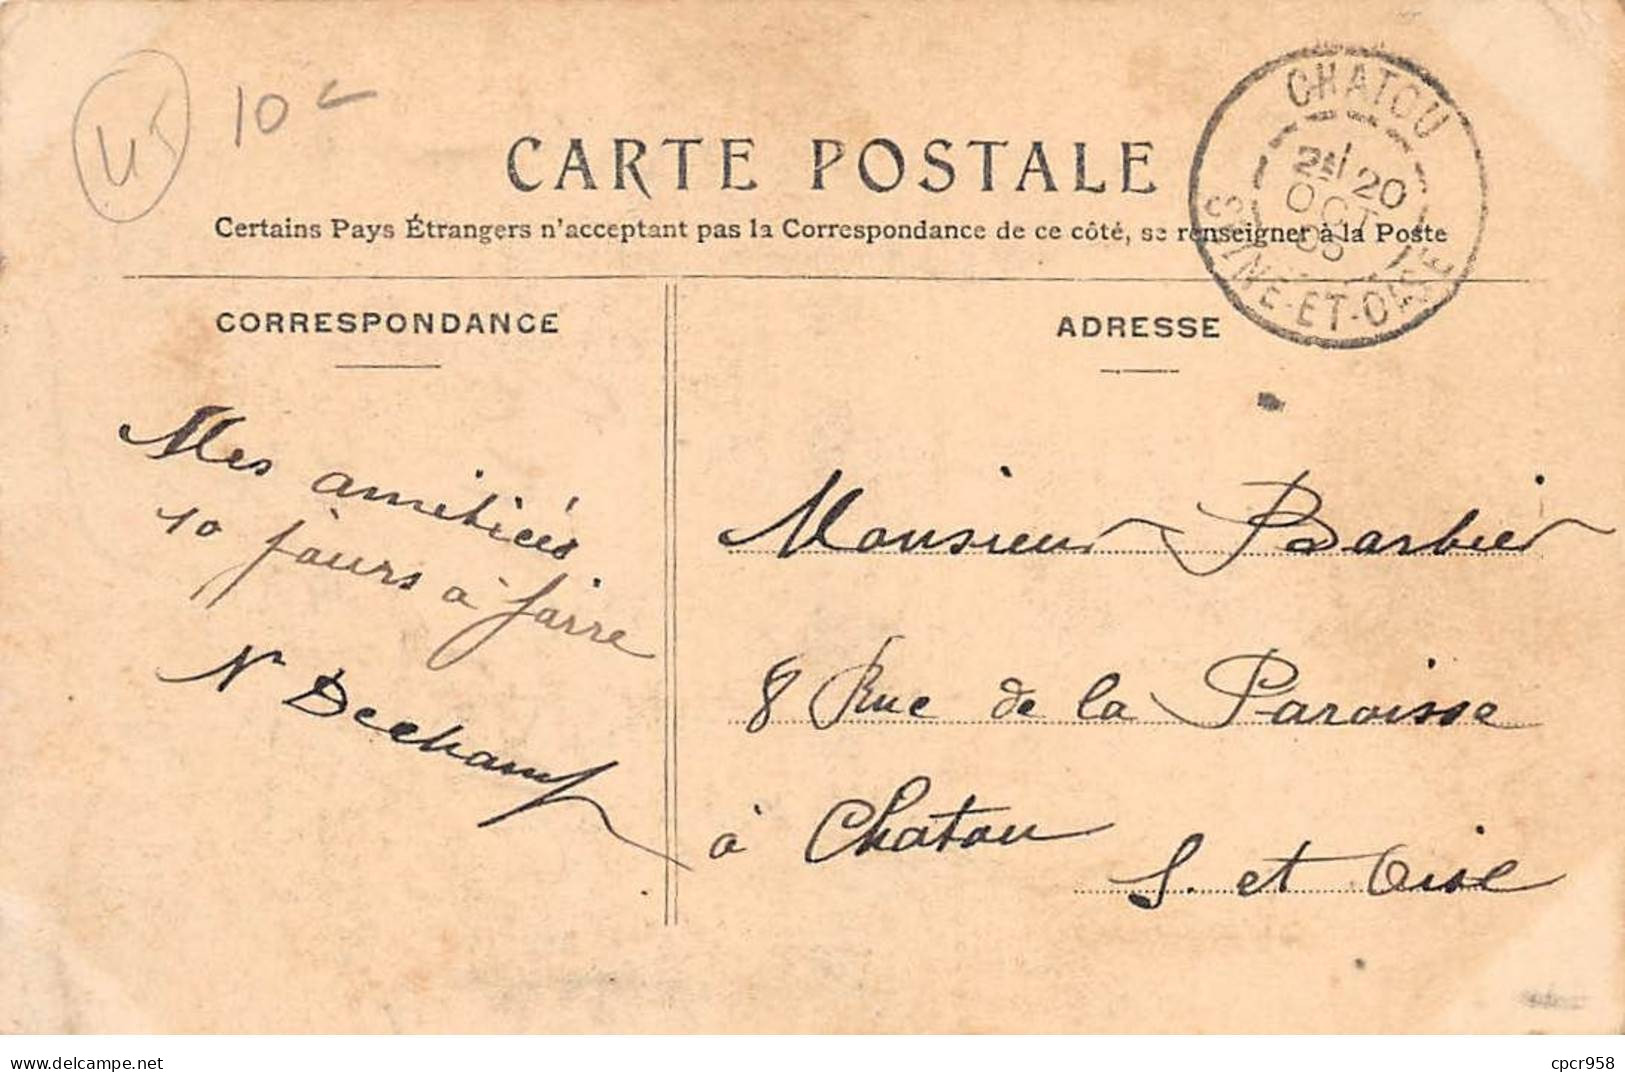 45 10
CARTE POSTALE
Certains Pays Étrangers n'acceptant pas la Correspondance de ce côté, se renseigner à la Poste
CHATOU
20
OCT
05
SEINE-ET-OISE
CORRESPONDANCE
ADRESSE
Mes amitiées
10 jours à faire
N Dechamp
Monsieur Barbier
8 Rue de la Paroisse
à Chatou
S. et Oise
delcampe.net
cpcr958